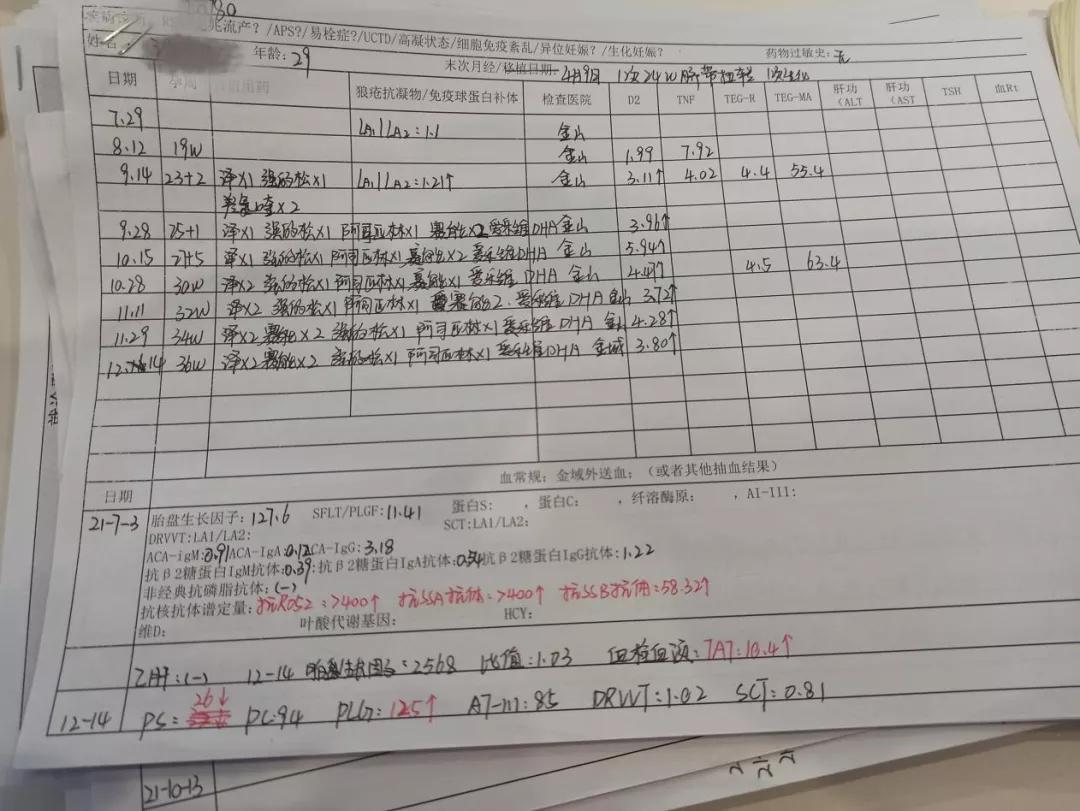 死流产？/APS?/易栓症?/UCTD/高凝状态/细胞免疫紊乱/异位妊娠？/生化妊娠？
姓名： 年龄：29 末次月经/移植日期：4月9日 1次24W脐带扭转 1次生化 药物过敏史：无
日期 孕周 用药 狼疮抗凝物/免疫球蛋白补体 检查医院 D2 TNF TEG-R TEG-MA 肝功（ALT 肝功（AST TSH 血Rt
7.29 LA1/LA2：1.1 金山
8.12 19W 金山 1.99 7.92
9.14 23+2 泽×1 强的松×1 LA1/LA2：1.21↑ 金山 3.11↑ 4.02 4.4 55.4
×2
9.28 25+1 泽×1 强的松×1 阿司匹林×1 赛能×2 爱乐维DHA 金山 3.96↑
10.15 27+5 泽×1 强的松×1 阿司匹林×1 赛能×2 爱乐维DHA 金山 5.94↑
10.28 30W 泽×2 强的松×1 阿司匹林×1 赛能×1 爱乐维 DHA 金山 4.47↑ 4.5 63.4
11.11 32W 泽×2 强的松×1 阿司匹林×1 赛能2. 爱乐维 DHA 金山 3.72↑
11.29 34W 泽×2 赛能×2 强的松×1 阿司匹林×1 爱乐维DHA 金山 4.28↑
12.14 36W 泽×2 赛能×2 强的松×1 阿司匹林×1 爱乐维DHA 金域 3.80↑
血常规；金域外送血；（或者其他抽血结果）
日期
21-7-3 胎盘生长因子：127.6 SFLT/PLGF：11.41 蛋白S： ，蛋白C： ，纤溶酶原： ，AI-III：
DRVVT：LA1/LA2： SCT：LA1/LA2：
ACA-igM：0.91 ACA-IgA：0.12 CA-IgG：3.18
抗β2糖蛋白IgM抗体：0.39；抗β2糖蛋白IgA抗体：0.54 抗β2糖蛋白IgG抗体：1.22
非经典抗磷脂抗体：(-)
抗核抗体谱定量：抗RO52：>400↑ 抗SSA抗体：>400↑ 抗SSB抗体：58.32↑
维D： 叶酸代谢基因： HCY：
乙肝：(-) 12-14 胎盘生长因子：2568 比值：1.03 血栓四项：TAT：10.4↑
12-14 PS： 26↓ PC：94 PLG：125↑ AT-III：85 DRVVT：1.02 SCT：0.81
21-10-13